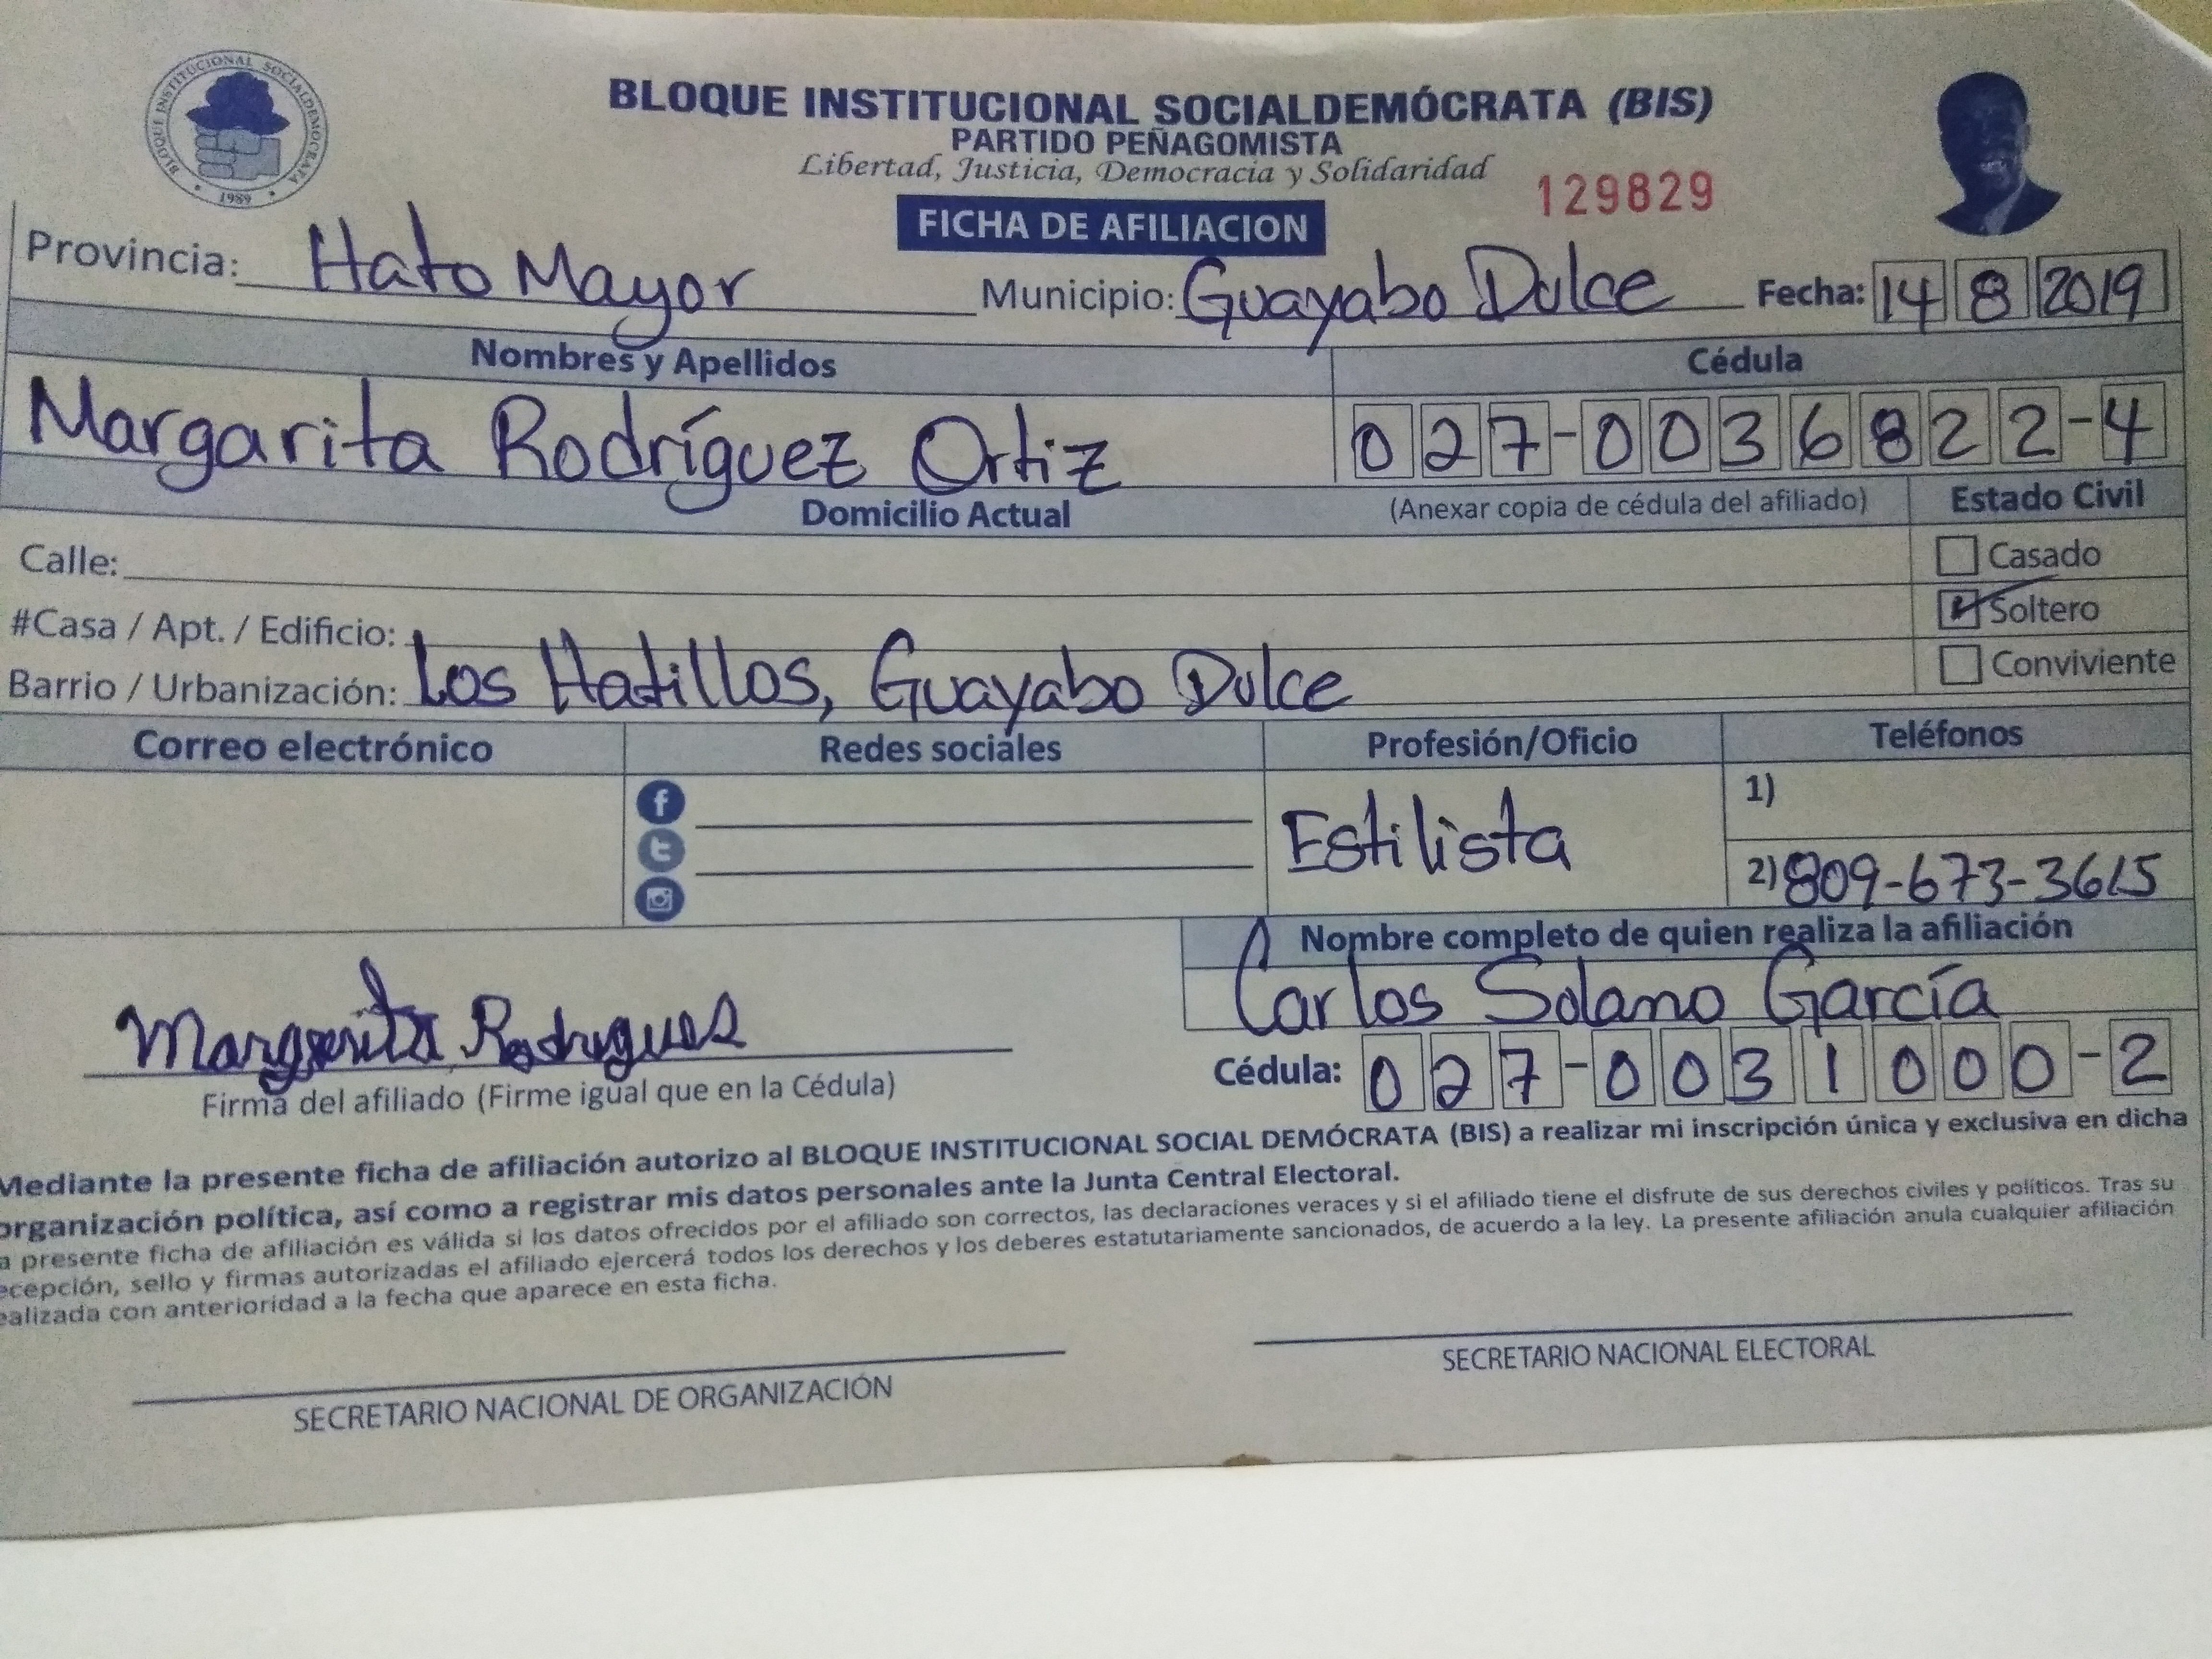 BLOQUE INSTITUCIONAL SOCIALDEMOCRATA
1989
BLOQUE INSTITUCIONAL SOCIALDEMÓCRATA (BIS)
PARTIDO PEÑAGOMISTA
Libertad, Justicia, Democracia y Solidaridad
129829
FICHA DE AFILIACION
Provincia: Hato Mayor Municipio: Guayabo Dulce Fecha: 14 8 2019
Nombres y Apellidos Cédula
Margarita Rodríguez Ortiz 027-0036822-4
Domicilio Actual (Anexar copia de cédula del afiliado) Estado Civil
Calle: Casado
#Casa / Apt. / Edificio: Soltero
Barrio / Urbanización: Los Hatillos, Guayabo Dulce Conviviente
Correo electrónico Redes sociales Profesión/Oficio Teléfonos
1)
Estilista
2) 809-673-3615
Nombre completo de quien realiza la afiliación
Carlos Solano García
Margarita Rodrigues
Cédula: 027-0031000-2
Firma del afiliado (Firme igual que en la Cédula)
Mediante la presente ficha de afiliación autorizo al BLOQUE INSTITUCIONAL SOCIAL DEMÓCRATA (BIS) a realizar mi inscripción única y exclusiva en dicha
organización política, así como a registrar mis datos personales ante la Junta Central Electoral.
a presente ficha de afiliación es válida si los datos ofrecidos por el afiliado son correctos, las declaraciones veraces y si el afiliado tiene el disfrute de sus derechos civiles y políticos. Tras su
ecepción, sello y firmas autorizadas el afiliado ejercerá todos los derechos y los deberes estatutariamente sancionados, de acuerdo a la ley. La presente afiliación anula cualquier afiliación
ealizada con anterioridad a la fecha que aparece en esta ficha.
SECRETARIO NACIONAL DE ORGANIZACIÓN
SECRETARIO NACIONAL ELECTORAL